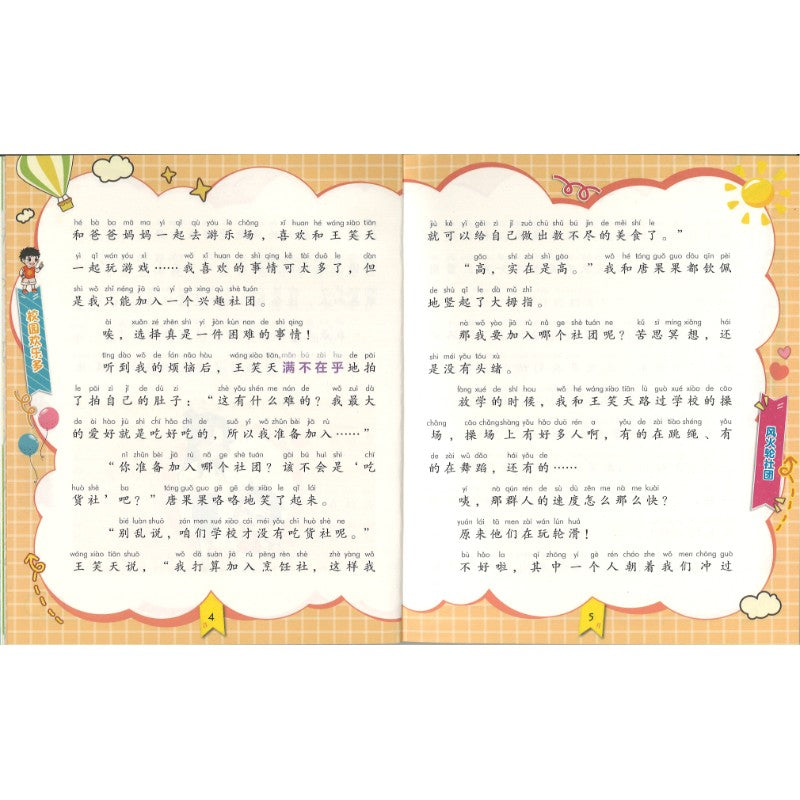 校园欢乐多
hé bà ba mā ma yì qǐ qù yóu lè chǎng xǐ huan hé wáng xiào tiān
和爸爸妈妈一起去游乐场，喜欢和王笑天
yì qǐ wán yóu xì wǒ xǐ huan de shì qing kě tài duō le dàn
一起玩游戏……我喜欢的事情可太多了，但
shì wǒ zhǐ néng jiā rù yí gè xìng qù shè tuán
是我只能加入一个兴趣社团。
ài xuǎn zé zhēn shì yí jiàn kùn nan de shì qing
唉，选择真是一件困难的事情！
tīng dào wǒ de fán nǎo hòu wáng xiào tiān mǎn bú zài hu de pāi
听到我的烦恼后，王笑天满不在乎地拍
le pāi zì jǐ de dù zi zhè yǒu shén me nán de wǒ zuì dà
了拍自己的肚子：“这有什么难的？我最大
de ài hào jiù shì chī hǎo chī de suǒ yǐ wǒ zhǔn bèi jiā rù
的爱好就是吃好吃的，所以我准备加入……”
nǐ zhǔn bèi jiā rù nǎ ge shè tuán gāi bú huì shì chī
“你准备加入哪个社团？该不会是‘吃
huò shè ba táng guǒ guo gē gē de xiào le qǐ lái
货社’吧？”唐果果咯咯地笑了起来。
bié luàn shuō zán men xué xiào cái méi yǒu chī huò shè ne
“别乱说，咱们学校才没有吃货社呢。”
wáng xiào tiān shuō wǒ dǎ suàn jiā rù pēng rèn shè zhè yàng wǒ
王笑天说，“我打算加入烹饪社，这样我
4
jiù kě yǐ gěi zì jǐ zuò chū shǔ bú jìn de měi shí le
就可以给自己做出数不尽的美食了。”
gāo shí zài shì gāo wǒ hé táng guǒ guo dōu qīn pèi
“高，实在是高。”我和唐果果都钦佩
de shù qǐ le dà mǔ zhǐ
地竖起了大拇指。
nà wǒ yào jiā rù nǎ ge shè tuán ne kǔ sī míng xiǎng hái
那我要加入哪个社团呢？苦思冥想，还
shì méi yǒu tóu xù
是没有头绪。
fàng xué de shí hou wǒ hé wáng xiào tiān lù guò xué xiào de cāo
放学的时候，我和王笑天路过学校的操
chǎng cāo chǎng shàng yǒu hǎo duō rén a yǒu de zài tiào shéng yǒu
场，操场上有好多人啊，有的在跳绳、有
de zài wǔ dǎo hái yǒu de
的在舞蹈，还有的……
yí nà qún rén de sù dù zěn me nà me kuài
咦，那群人的速度怎么那么快？
yuán lái tā men zài wán lún huá
原来他们在玩轮滑！
bù hǎo la qí zhōng yí gè rén cháo zhe wǒ men chōng guò
不好啦，其中一个人朝着我们冲过
风火轮社团
5